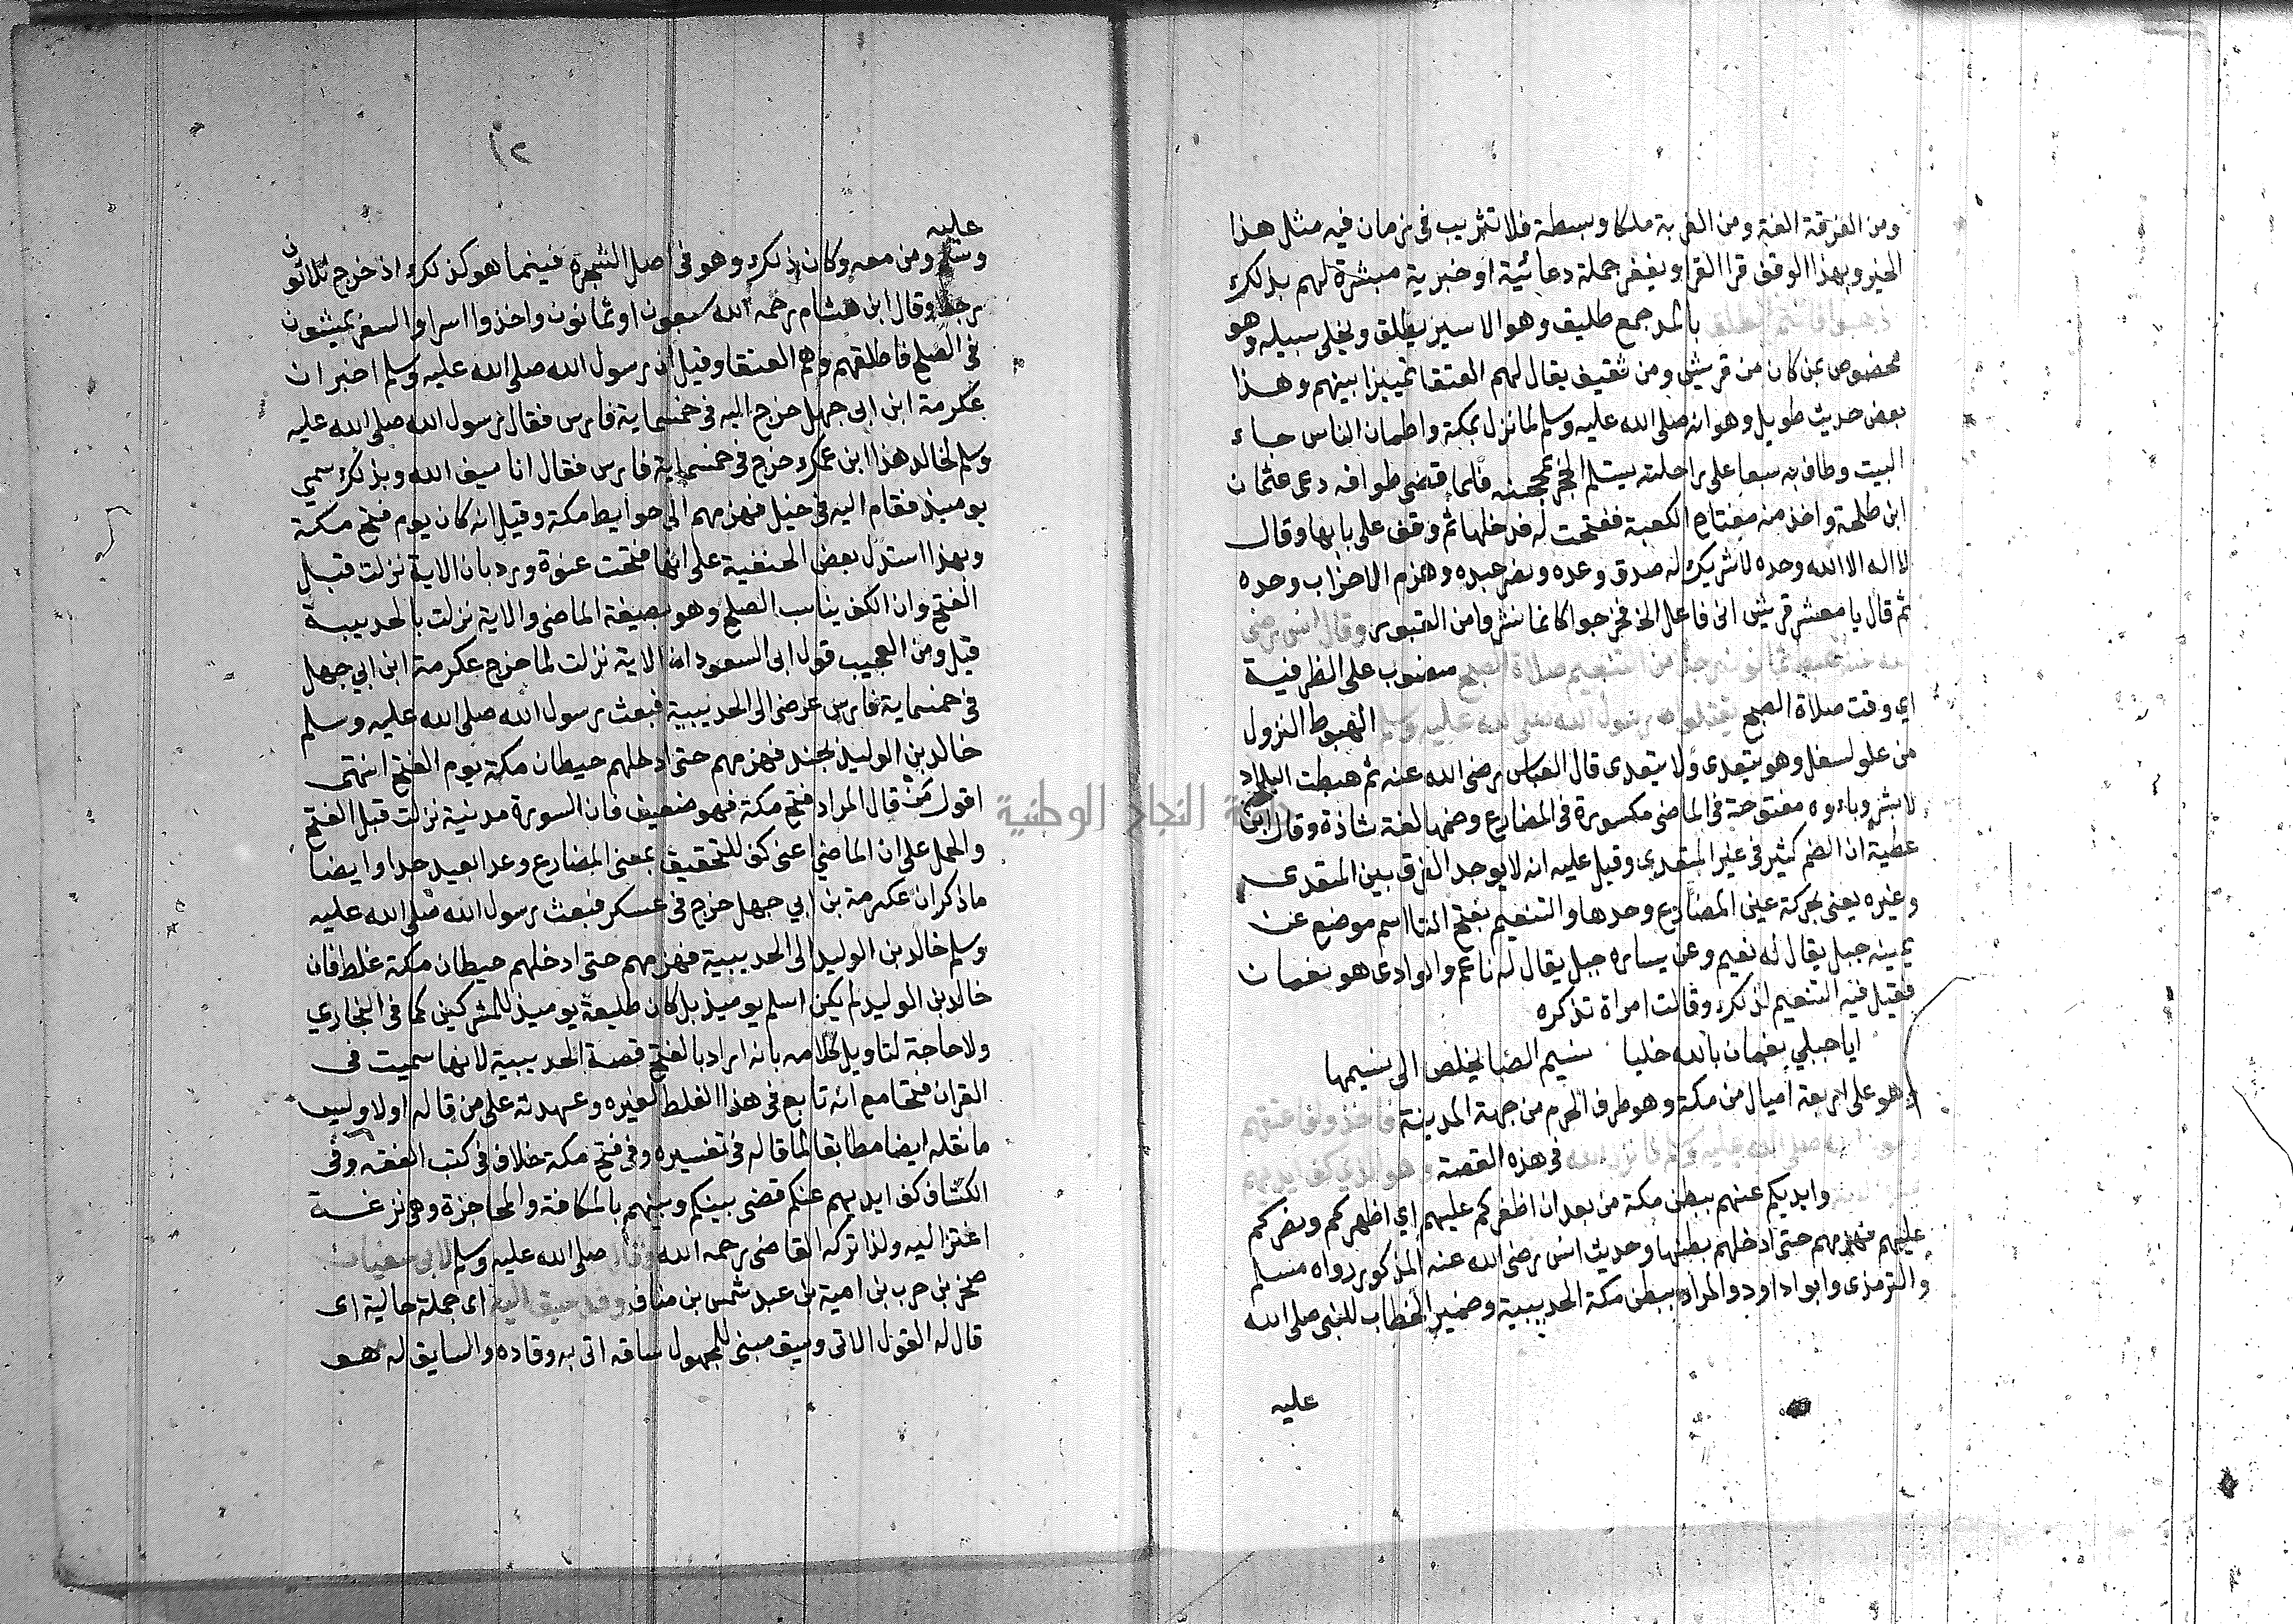 ومن الفرقة الفة ومن الغربة ملكا وبسطة فلا تثريب فى زمان فيه مثل هذا
الخير وبهذا الوقف قرا القرا ويغفر جملة دعائية او خبرية مبشرة لهم بذلك
بالمد جمع طليق وهو الاسير يطلق ويخلى سبيله وهو
مخصوص بمن كان من قريش ومن ثقيف يقال لهم العتقا تمييزا بينهم وهذا
بعض حديث طويل وهو انه صلى الله عليه وسلم لما نزل بمكة واطمان الناس جاء
البيت وطاف به سبعا على راحلته يستلم الحجر بمحجنه فلما قضى طوافه دعى عثمان
ابن طلحة واخذ منه مفتاح الكعبة ففتحت له فدخلها ثم وقف على بابها وقال
لا اله الا الله وحده لا شريك له صدق وعده ونصر عبده وهزم الاحزاب وحده
ثم قال يا معشر قريش انى فاعل الخ فخرجوا كانما نشروا من القبور وقال انس رضى
ثمانون رجلا من التنعيم صلاة الصبح منصوب على الظرفية
اي وقت صلاة الصبح رسول الله صلى الله عليه وسلم الهبوط النزول
من علو لسفل وهو يتعدى ولا يتعدى قال العباس رضى الله عنه ثم هبطت البلاد
لا بشر وباءه مفتوحة فى الماضى مكسورة فى المضارع وضمها لغة شاذة وقال ابن
عطية ان الضم كثير فى غير المتعدى وقيل عليه انه لا يوجد الفرق بين المتعدى
وغيره يعنى بحركة عين المضارع وحدها والتنعيم بفتح التا اسم موضع عن
يمينه جبل يقال له نعيم وعن يساره جبل يقال له ناعم والوادى هو نعمان
فقيل فيه التنعيم لذلك وقالت امراة تذكره
ايا جبلي نعمان بالله خليا نسيم الصبا يخلص الى نسيمها
وهو على اربعة اميال من مكة وهو طرف الحرم من جهة المدينة فاخذوا فاعتقهم
صلى الله عليه وسلم فى هذه القصة وهو الذي كف ايديهم
وايديكم عنهم ببطن مكة من بعد ان اظفركم عليهم اي اظهركم ونصركم
عليهم فهزمهم حتى ادخلهم بطنها وحديث انس رضى الله عنه المذكور رواه مسلم
والترمذى وابو اداود والمراد ببطن مكة الحديبية وضمير الخطاب للنبى صلى الله
عليه
١٢
عليه
وسلم ومن معه وكان ذلك وهو فى اصل الشجرة فبينما هو كذلك اذ خرج ثلاثون
رجلا وقال ابن هشام رحمه الله سبعون او ثمانون واخذوا اسرا والسفر يمشون
فى الصلح فاطلقهم وهم العتقا وقيل ان رسول الله صلى الله عليه وسلم اخبر ان
عكرمة ابن ابى جهل خرج اليه فى خمسماية فارس فقال رسول الله صلى الله عليه
وسلم لخالد هذا ابن عمك خرج فى خمسماية فارس فقال انا سيف الله وبذلك سمي
يوميذ فقام اليه فى خيل فهزمهم الى حوايط مكة وقيل انه كان يوم فتح مكة
وبهذا استدل بعض الحنفية على انها فتحت عنوة ورد بان الاية نزلت قبل
الفتح وان الكف يناسب الصلح وهو بصيغة الماضى والاية نزلت بالحديبية
قيل ومن العجيب قول ابى السعود ان الاية نزلت لما خرج عكرمة ابن ابي جهل
فى خمسماية فارس عرضى الى الحديبية فبعث رسول الله صلى الله عليه وسلم
خالد بن الوليد بجند فهزمهم حتى ادخلهم حيطان مكة يوم الفتح انتهى
اقول من قال المراد فتح مكة فهو ضعيف فان السورة مدنية نزلت قبل الفتح
والحمل على ان الماضي اعنى كف للتحقيق بمعنى المضارع وعدا بعيد جدا وايضا
ما ذكر ان عكرمة بن ابي جهل خرج فى عسكر فبعث رسول الله صلى الله عليه
وسلم خالد بن الوليد الى الحديبية فهزمهم حتى ادخلهم حيطان مكة غلط فان
خالد بن الوليد لم يكن اسلم يوميذ بل كان طليعة يوميذ للمشركين كما فى البخاري
ولا حاجة لتاويل كلامه بانه اراد بالفتح قصة الحديبية لانها سميت فى
القران فتحا مع انه تابع فى هذا الغلط لغيره وعهدته على من قاله اولا وليس
ما نقله ايضا مطابقا لما قاله فى تفسيره وفى فتح مكة خلاف فى كتب الفقه وفى
الكشاف كف ايديهم عنكم قضى بينكم وبينهم بالمكافة والمحاجزة وهى نزغة
اعتزاليه ولذا تركه القاضى رحمه الله وقال صلى الله عليه وسلم لابى سفيان
صخر بن حرب بن امية بن عبد شمس بن مناف وقد سيق اليه اى جملة حالية اى
قال له القول الاتى وسيق مبنى للمجهول ساقه اتى به وقاده والسايق له هو